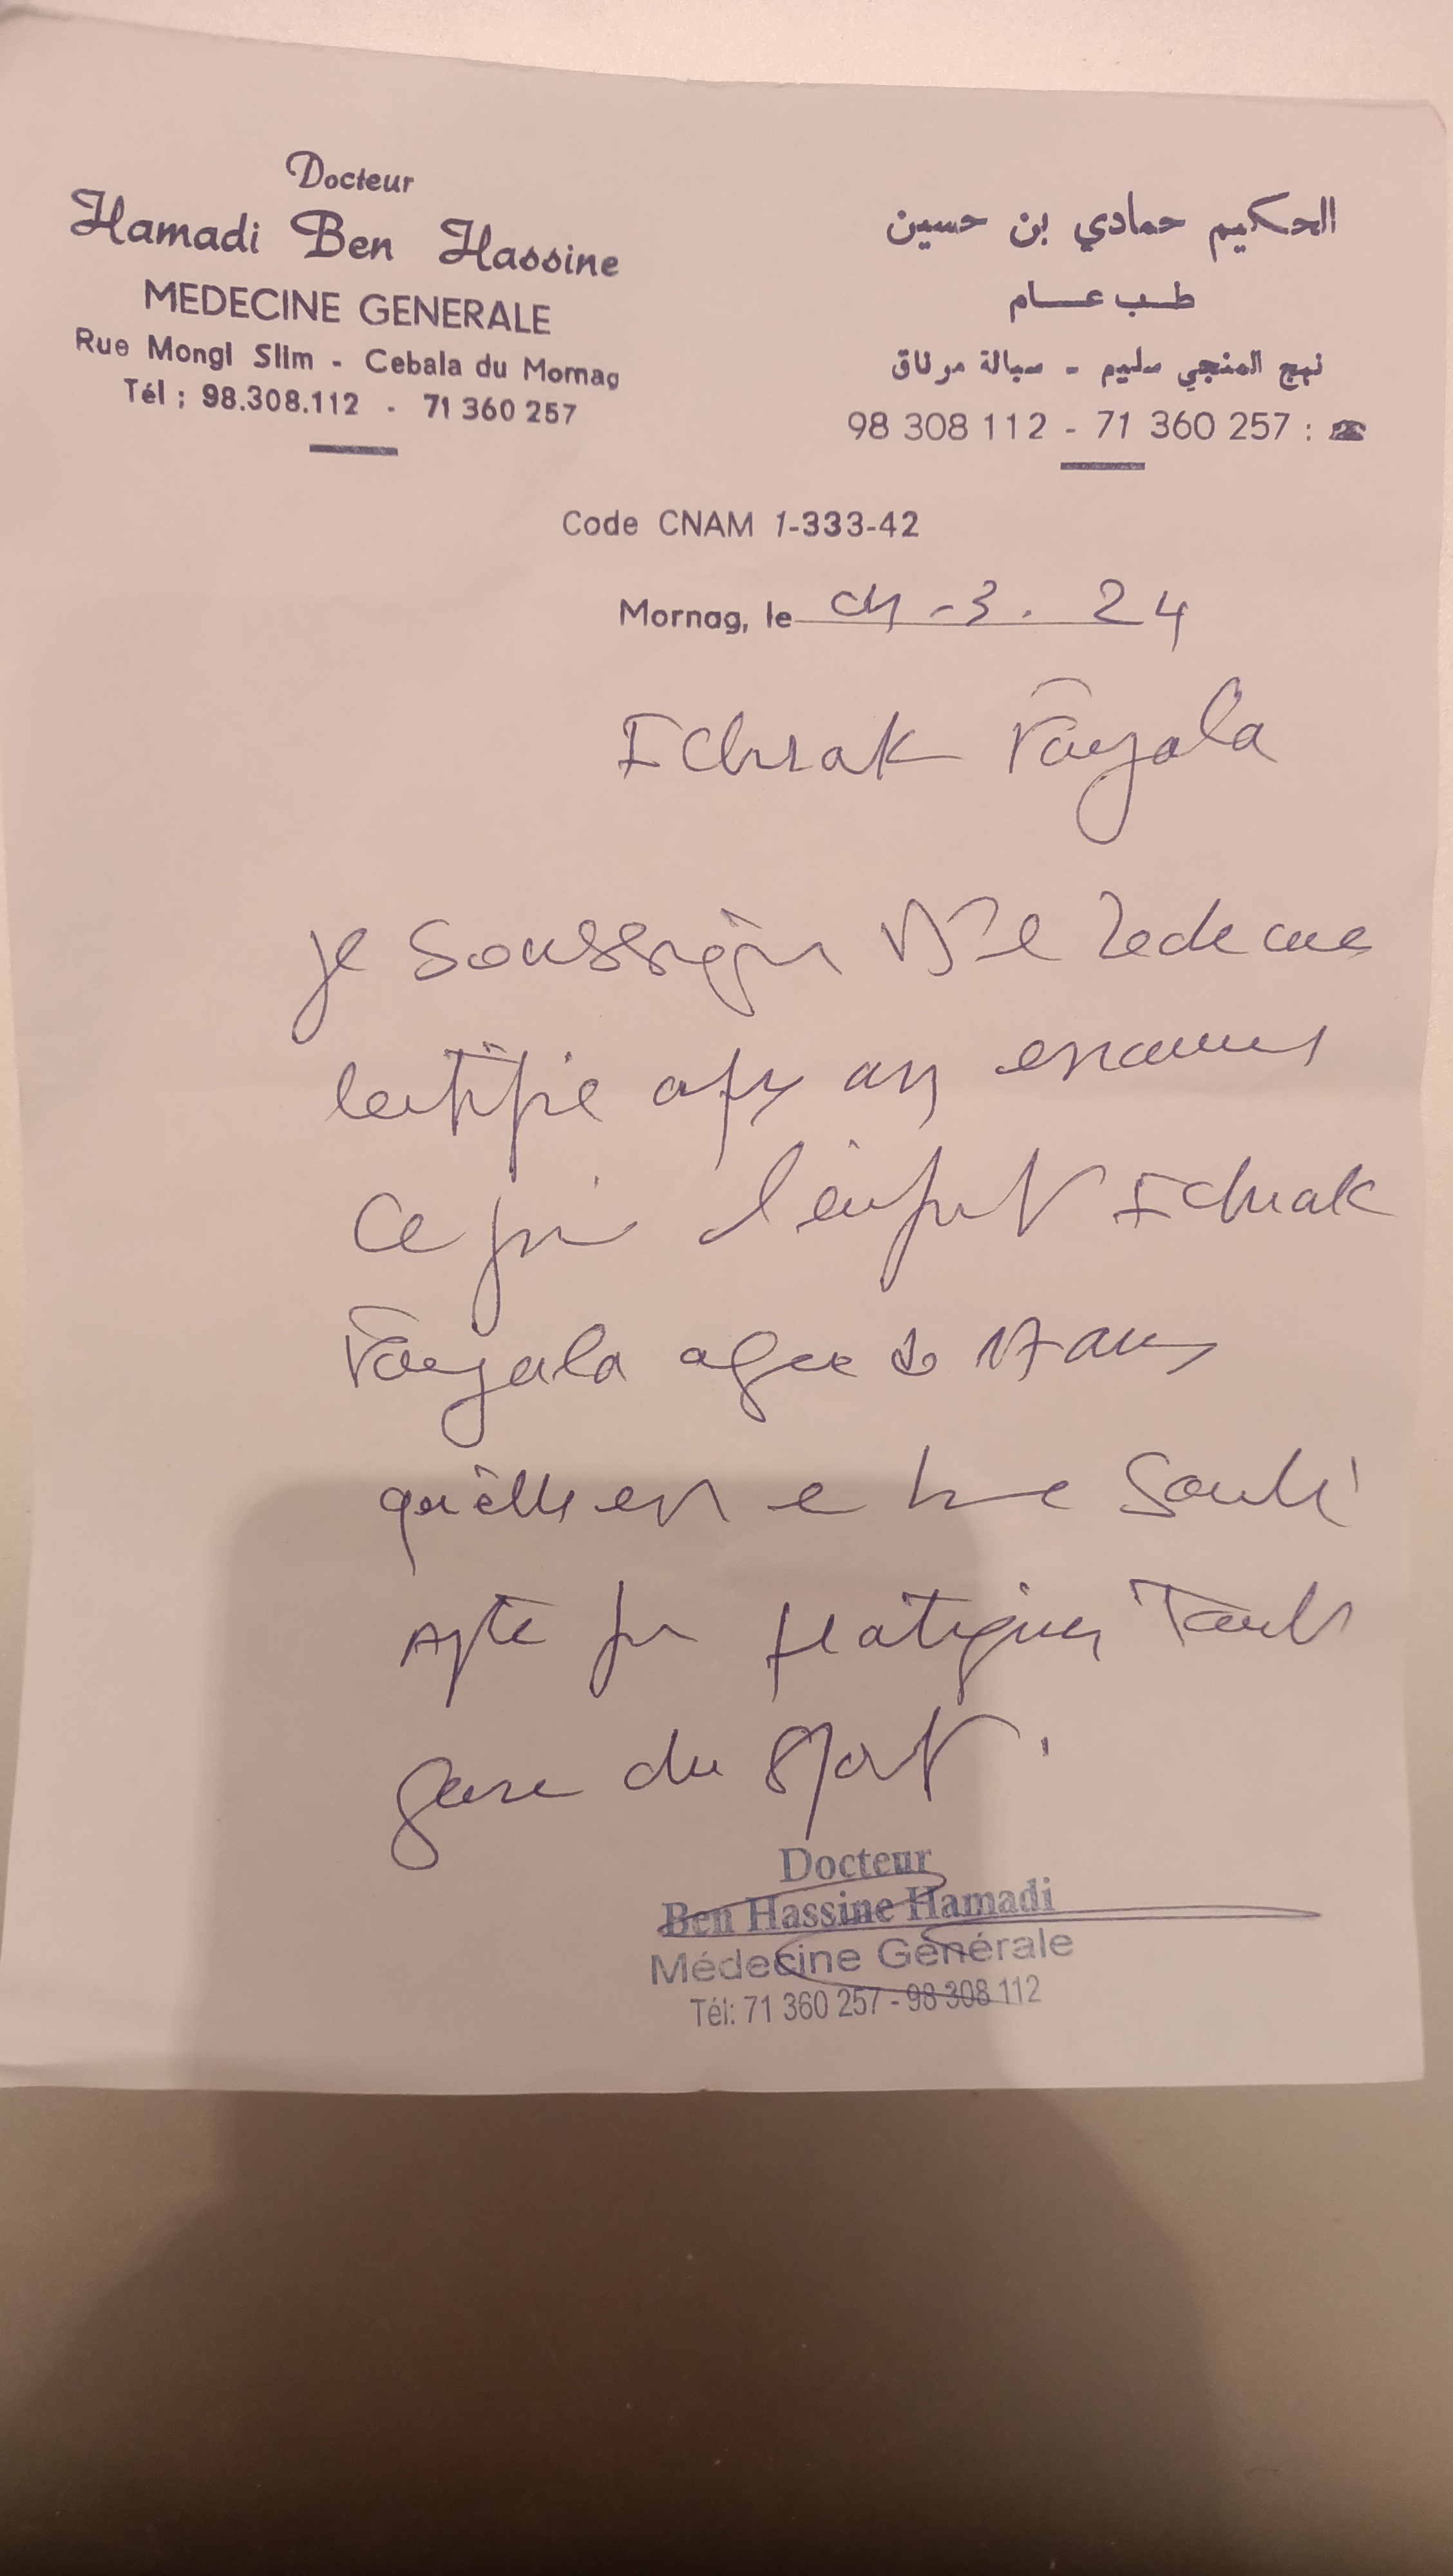 Docteur
Hamadi Ben Hassine
MEDECINE GENERALE
Rue Mongi Slim - Cebala du Mornag
Tél : 98.308.112 - 71 360 257
الحكيم حمادي بن حسين
طب عام
نهج المنجي سليم - سبالة مرناق
98 308 112 - 71 360 257 :
Code CNAM 1-333-42
Mornag, le 01-3. 24
Echrak Fayala
je soussigné
certifie après examen
ce jour l'enfant Echrak
Fayala agee de 17 ans
qu'elle est en bonne Santé
Apte pour pratiquer Tout
genre du sport.
Docteur
Ben Hassine Hamadi
Médecine Générale
Tél: 71 360 257 - 98 308 112